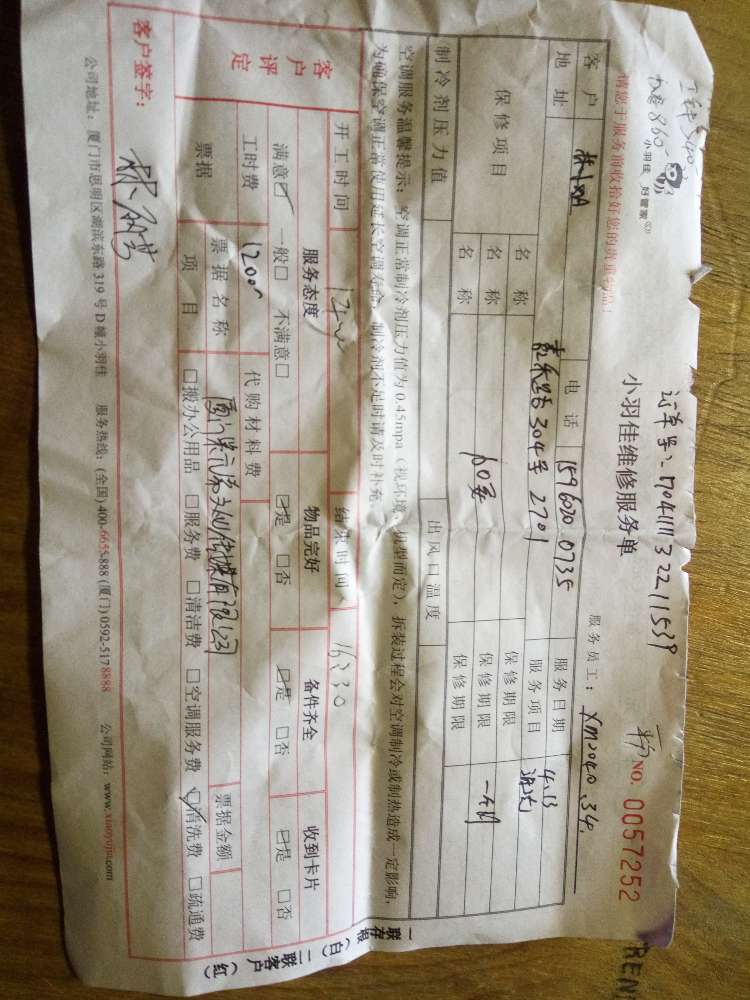 小羽佳 好管家
小羽佳维修服务单
NO. 0057252
请您于服务前收拾好您的贵重物品!
服务员工: XM2040.34.
客户
电话 1596020 0735
服务日期 4.13
地址 304号 2701
服务项目 清洗
保修项目
名称
保修期限
名称 10套
保修期限
名称
保修期限 一个月
制冷剂压力值
出风口温度
空调服务温馨提示: 空调正常制冷剂压力值为0.45mpa (视环境、机型而定), 拆装过程会对空调制冷或制热造成一定影响,
为确保空调正常使用延长空调寿命, 制冷剂不足时请及时补充。
开工时间
结束时间 16:30
客户评定
服务态度
物品完好
备件齐全
收到卡片
满意☑ 一般□ 不满意□
☑是 □否
☑是 □否
☑是 □否
工时费 1200
代购材料费
票据
票据名称
票据金额
项目
□报办公用品 □服务费 □清洁费 □空调服务费 ☑清洗费 □疏通费
客户签字:
公司地址: 厦门市思明区湖滨东路 319 号 D 幢小羽佳 服务热线: (全国) 400-6655-888 (厦门) 0592-5178888 公司网站: www.xiaoyujia.com
一联存根(白) 二联客户(红)
REN